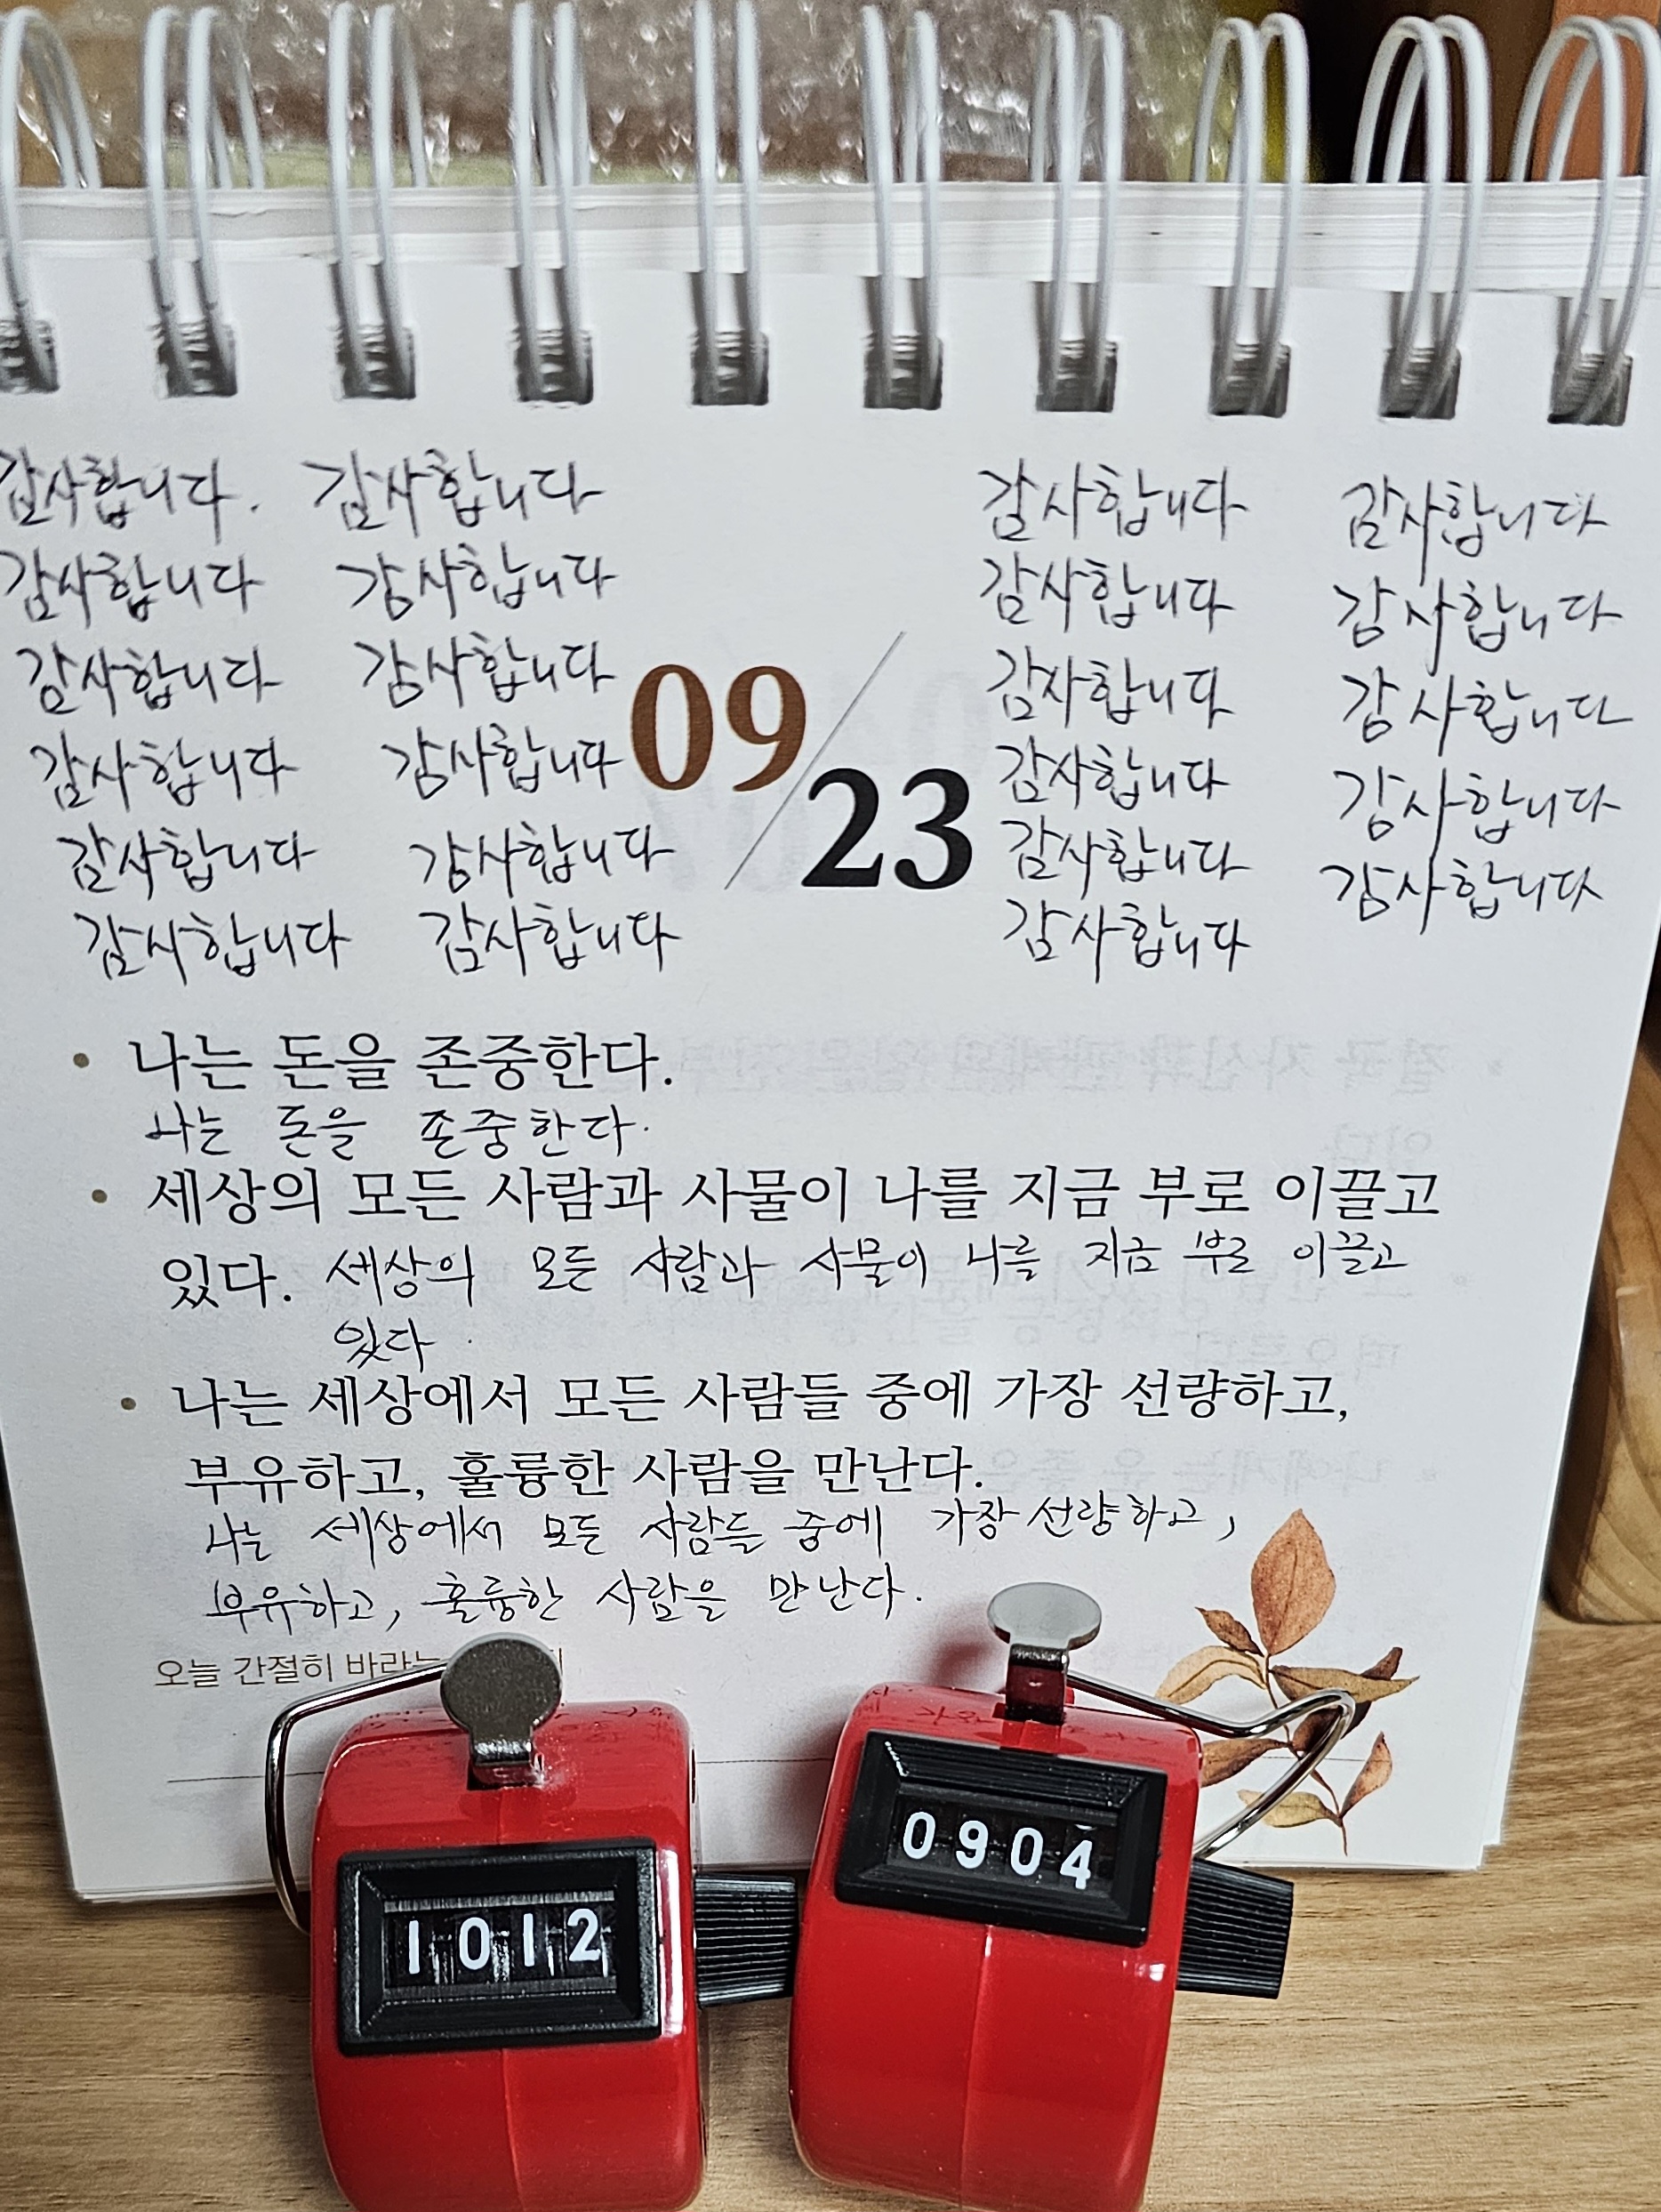 감사합니다. 감사합니다 감사합니다 감사합니다
감사합니다 감사합니다 감사합니다 감사합니다
감사합니다 감사합니다 감사합니다 감사합니다
감사합니다 감사합니다 감사합니다 감사합니다
감사합니다 감사합니다 감사합니다 감사합니다
감사합니다 감사합니다 감사합니다
09/23
• 나는 돈을 존중한다.
나는 돈을 존중한다.
• 세상의 모든 사람과 사물이 나를 지금 부로 이끌고
있다. 세상의 모든 사람과 사물이 나를 지금 부로 이끌고
있다.
• 나는 세상에서 모든 사람들 중에 가장 선량하고,
부유하고, 훌륭한 사람을 만난다.
나는 세상에서 모든 사람들 중에 가장 선량하고,
부유하고, 훌륭한 사람을 만난다.
오늘 간절히 바라는
1012
0904